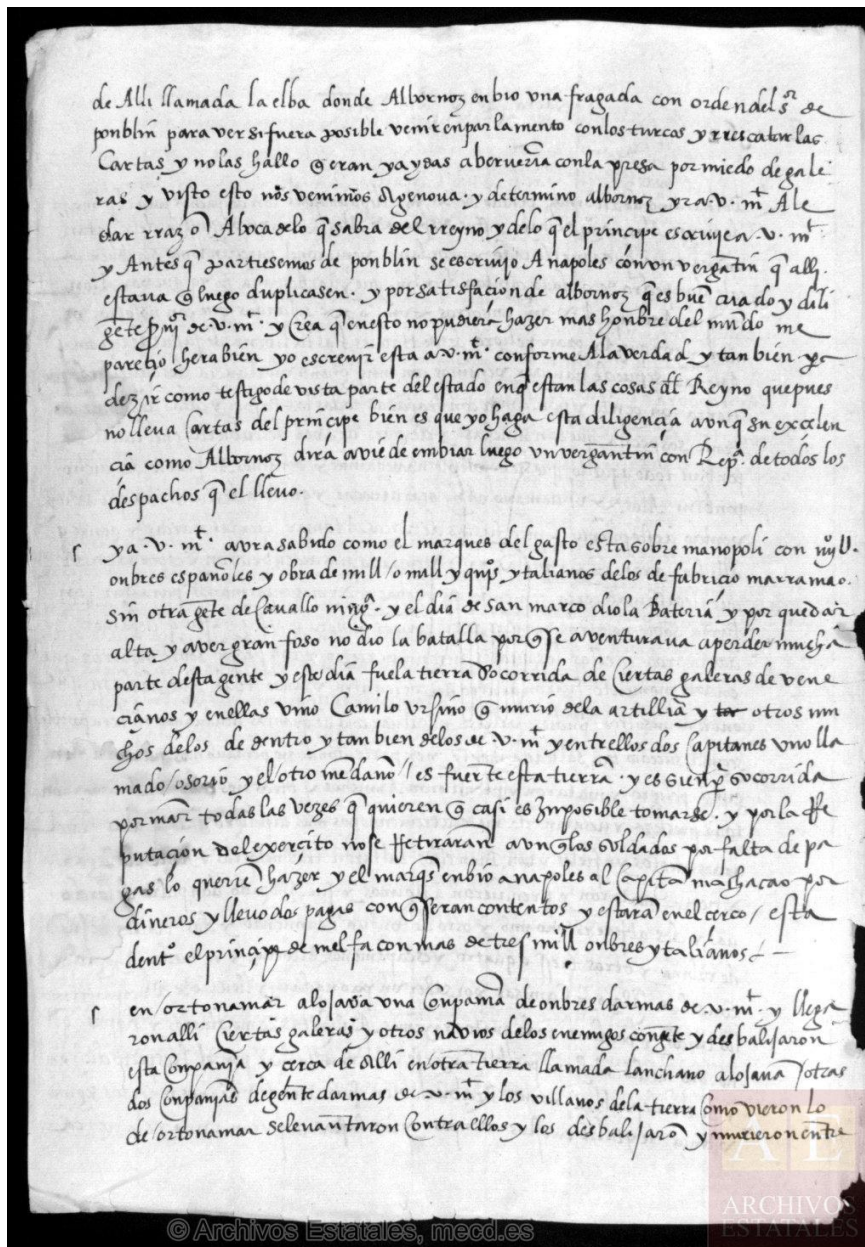 de Alli llamada la elba donde Albornoz enbio una fragada con orden del s.or de
ponblin para ver si fuera posible venir en parlamento con los turcos y rrescatar las
Cartas y no las hallo q eran ya ydas a berveria con la presa por miedo de gale
ras y visto esto nos venimos a genova. y determino albornoz yr a. v. m.t A le
dar rrazō A boca de lo q sabra del rreyno y de lo q el principe escrive a. v. m.t
y Antes q partiesemos de ponblin se escrivio A napoles con un vergantin q alli
estava q luego duplicasen. y por satisfacion de albornoz q es buē criado y dili
gēte de v. m.t y Crea q en esto no pudiera hazer mas honbre del mundo me
parecio hera bien yo escrevir esta a v. m.t conforme A la verdad y tanbien
dezir como testigo de vista parte del estado en q estan las cosas dl Reyno que pues
no lleva Cartas del principe bien es que yo haga esta diligencia aunq su excelen
cia como Albornoz dira avie de embiar luego un vergantin con Rep.ta de todos los
despachos q el llevo.
ya. v. m.t avra sabido como el marques del gasto esta sobre manopoli con
onbres españoles y obra de mill / o mill y qui.os ytalianos de los de fabricio marramao.
sin otra gēte de Cavallo ning.a y el dia de san marco dio la Bateria y por quedar
alta y aver gran foso no dio la batalla por q se aventurava a perder mucha
parte desta gente y este dia fue la tierra socorrida de Ciertas galeras de vene
cianos y en ellas vino Camilo ursino q murio de la artilleria y otros mu
chos de los de dentro y tanbien de los de v. m.t y entrellos dos Capitanes uno lla
mado / osorio y el otro medano / es fuerte esta tierra. y es sienp socorrida
por mar todas las vezes q quieren q casi es Imposible tomarse. y por la Re
putacion del exercito no se Retiraran aunq los soldados por falta de pa
gas lo querien hazer y el marqs enbio a napoles al Capitā machacao por
dineros y llevo dos pagas con q seran contentos y estaran en el cerco / esta
dent.o el principe de melfa con mas de tres mill onbres ytalianos
en / ortonamar alojava una Conpania de onbres darmas de v. m.t y llega
ron alli Ciertas galeras y otros navios de los enemigos con gēte y desbalijaron
esta Compania y cerca de alli en / otra tierra llamada lanchano alojavan / otras
dos Conpanias de gente darmas de v. m.t y los villanos de la tierra Como vieron lo
de / ortonamar se levantaron Contra ellos y los desbalijarō y murieron entre
ARCHIVOS
ESTATALES
© Archivos Estatales, mecd.es